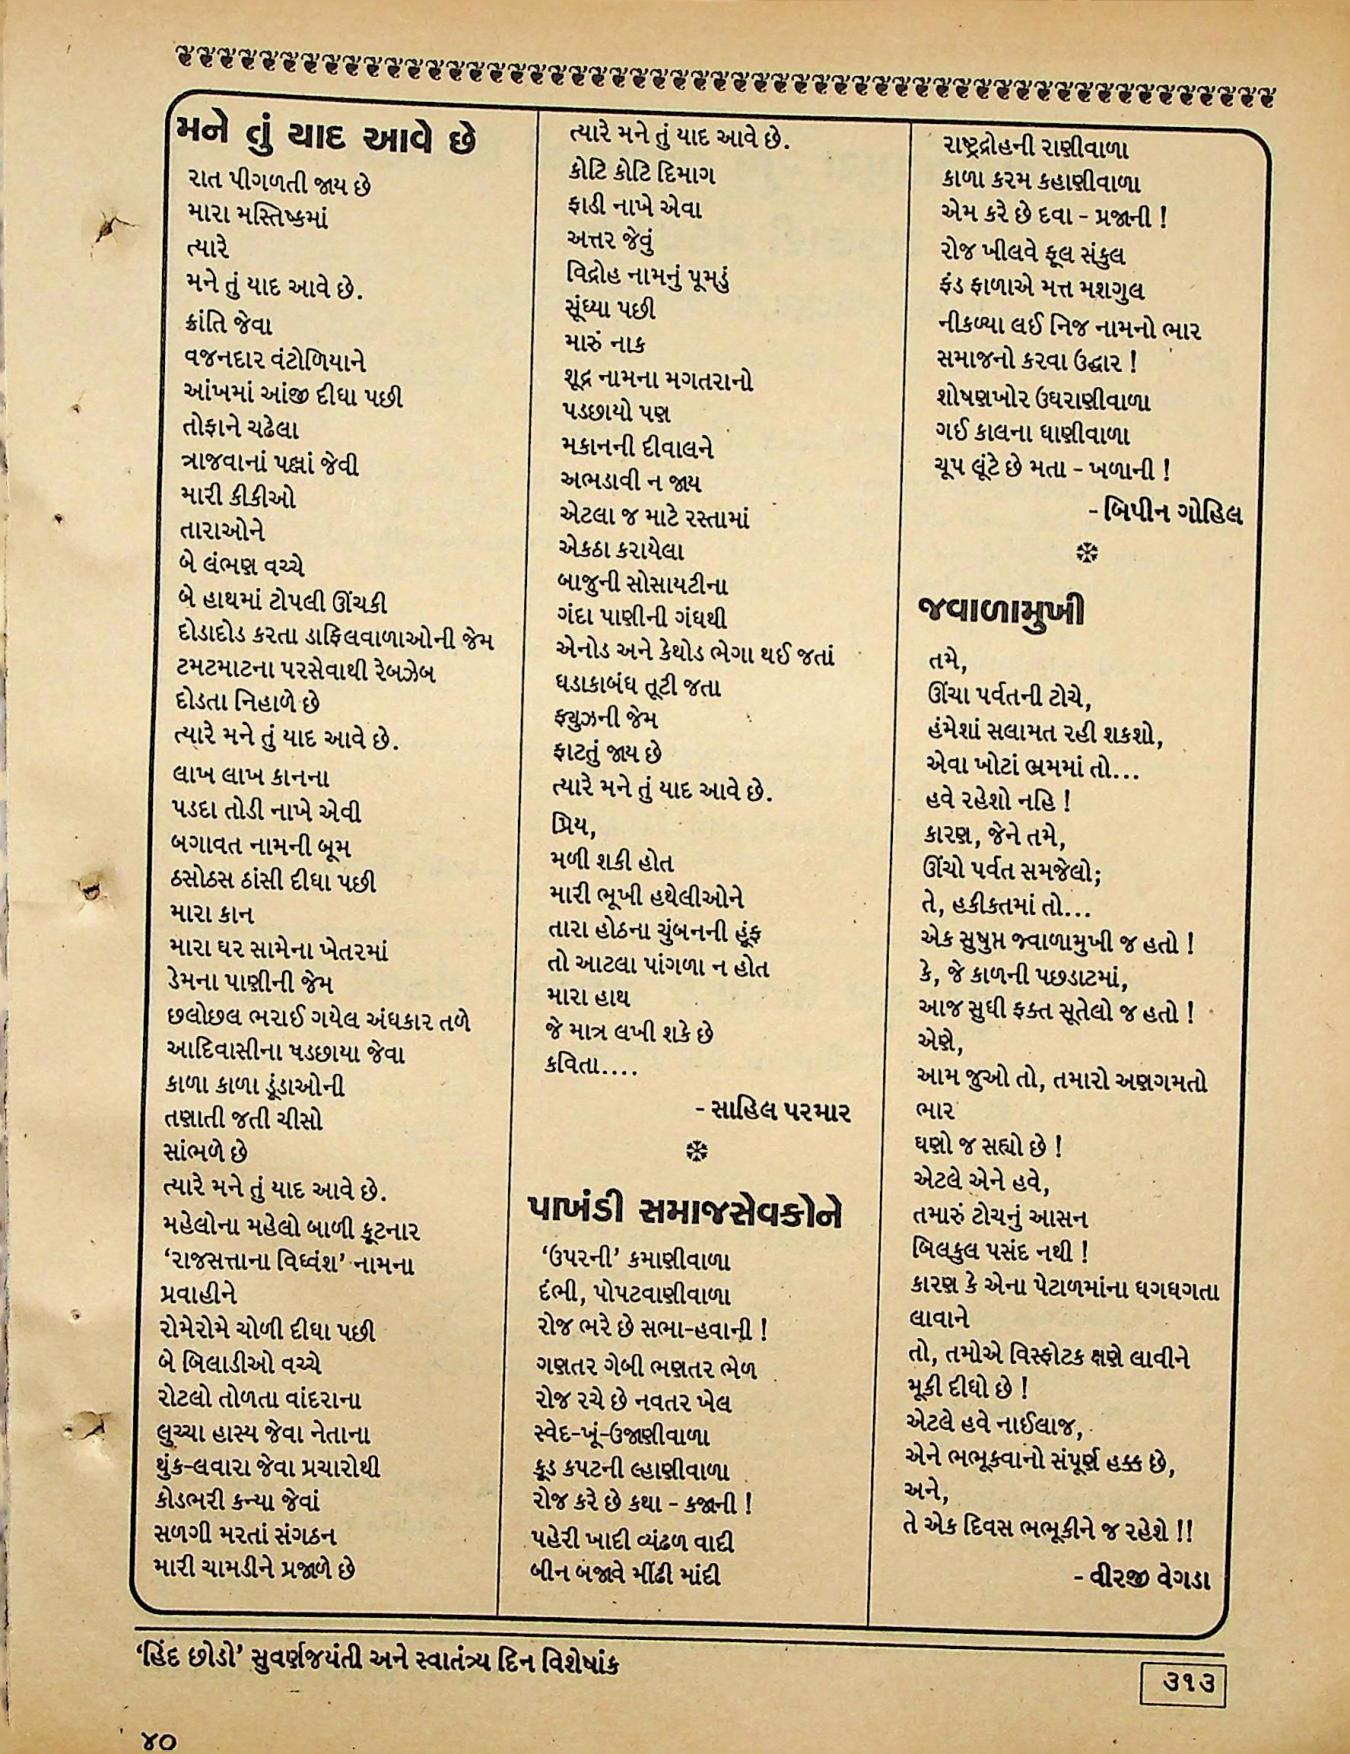 મને તું યાદ આવે છે
રાત પીગળતી જાય છે
મારા મસ્તિષ્કમાં
ત્યારે
મને તું યાદ આવે છે.
ક્રાંતિ જેવા
વજનદાર વંટોળિયાને
આંખમાં આંજી દીધા પછી
તોફાને ચઢેલા
ત્રાજવાનાં પલ્લાં જેવી
મારી કીકીઓ
તારાઓને
બે લંભણ વચ્ચે
બે હાથમાં ટોપલી ઊંચકી
દોડાદોડ કરતા ડાફિલવાળાઓની જેમ
ટમટમાટના પરસેવાથી રેબઝેબ
દોડતા નિહાળે છે
ત્યારે મને તું યાદ આવે છે.
લાખ લાખ કાનના
પડદા તોડી નાખે એવી
બગાવત નામની બૂમ
ઠસોઠસ ઠાંસી દીધા પછી
મારા કાન
મારા ઘર સામેના ખેતરમાં
ડેમના પાણીની જેમ
છલોછલ ભરાઈ ગયેલ અંધકાર તળે
આદિવાસીના પડછાયા જેવા
કાળા કાળા ડૂંડાઓની
તણાતી જતી ચીસો
સાંભળે છે
ત્યારે મને તું યાદ આવે છે.
મહેલોના મહેલો બાળી ફૂટનાર
‘રાજસત્તાના વિધ્વંશ’ નામના
પ્રવાહીને
રોમેરોમે ચોળી દીધા પછી
બે બિલાડીઓ વચ્ચે
રોટલો તોળતા વાંદરાના
લુચ્ચા હાસ્ય જેવા નેતાના
થુંક-લવારા જેવા પ્રચારોથી
કોડભરી કન્યા જેવાં
સળગી મરતાં સંગઠન
મારી ચામડીને પ્રજાળે છે
ત્યારે મને તું યાદ આવે છે.
કોટિ કોટિ દિમાગ
ફાડી નાખે એવા
અત્તર જેવું
વિદ્રોહ નામનું પૂમડું
સૂંઘ્યા પછી
મારું નાક
શૂદ્ર નામના મગતરાનો
પડછાયો પણ
મકાનની દીવાલને
અભડાવી ન જાય
એટલા જ માટે રસ્તામાં
એકઠા કરાયેલા
બાજુની સોસાયટીના
ગંદા પાણીની ગંધથી
એનોડ અને કેથોડ ભેગા થઈ જતાં
ધડાકાબંધ તૂટી જતા
ફ્યુઝની જેમ
ફાટતું જાય છે
ત્યારે મને તું યાદ આવે છે.
પ્રિય,
મળી શકી હોત
મારી ભૂખી હથેલીઓને
તારા હોઠના ચુંબનની હૂંફ
તો આટલા પાંગળા ન હોત
મારા હાથ
જે માત્ર લખી શકે છે
કવિતા....
- સાહિલ પરમાર
પાખંડી સમાજસેવકોને
‘ઉપરની’ કમાણીવાળા
દંભી, પોપટવાણીવાળા
રોજ ભરે છે સભા-હવાની !
ગણતર ગેબી ભણતર ભેળ
રોજ રચે છે નવતર ખેલ
સ્વેદ-ખૂં-ઉજાણીવાળા
કૂડ કપટની લ્હાણીવાળા
રોજ કરે છે કથા - કજાની !
પહેરી ખાદી વ્યંઢળ વાદી
બીન બજાવે મીંઢી માંદી
રાષ્ટ્રદ્રોહની રાણીવાળા
કાળા કરમ કહાણીવાળા
એમ કરે છે દવા - પ્રજાની !
રોજ ખીલવે ફૂલ સંકુલ
ફંડ ફાળાએ મત્ત મશગુલ
નીકળ્યા લઈ નિજ નામનો ભાર
સમાજનો કરવા ઉદ્ધાર !
શોષણખોર ઉઘરાણીવાળા
ગઈ કાલના ઘાણીવાળા
ચૂપ લૂંટે છે મતા - ખળાની !
- બિપીન ગોહિલ
જવાળામુખી
તમે,
ઊંચા પર્વતની ટોચે,
હંમેશાં સલામત રહી શકશો,
એવા ખોટાં ભ્રમમાં તો...
હવે રહેશો નહિ !
કારણ, જેને તમે,
ઊંચો પર્વત સમજેલો;
તે, હકીકતમાં તો...
એક સુષુપ્ત જ્વાળામુખી જ હતો !
કે, જે કાળની પછડાટમાં,
આજ સુધી ફક્ત સૂતેલો જ હતો !
એણે,
આમ જુઓ તો, તમારો અણગમતો
ભાર
ઘણો જ સહ્યો છે !
એટલે એને હવે,
તમારું ટોચનું આસન
બિલકુલ પસંદ નથી !
કારણ કે એના પેટાળમાંના ધગધગતા
લાવાને
તો, તમોએ વિસ્ફોટક ક્ષણે લાવીને
મૂકી દીધો છે !
એટલે હવે નાઈલાજ,
એને ભભૂકવાનો સંપૂર્ણ હક્ક છે,
અને,
તે એક દિવસ ભભૂકીને જ રહેશે !!
- વીરજી વેગડા
‘હિંદ છોડો’ સુવર્ણજયંતી અને સ્વાતંત્ર્ય દિન વિશેષાંક
૩૧૩
૪૦